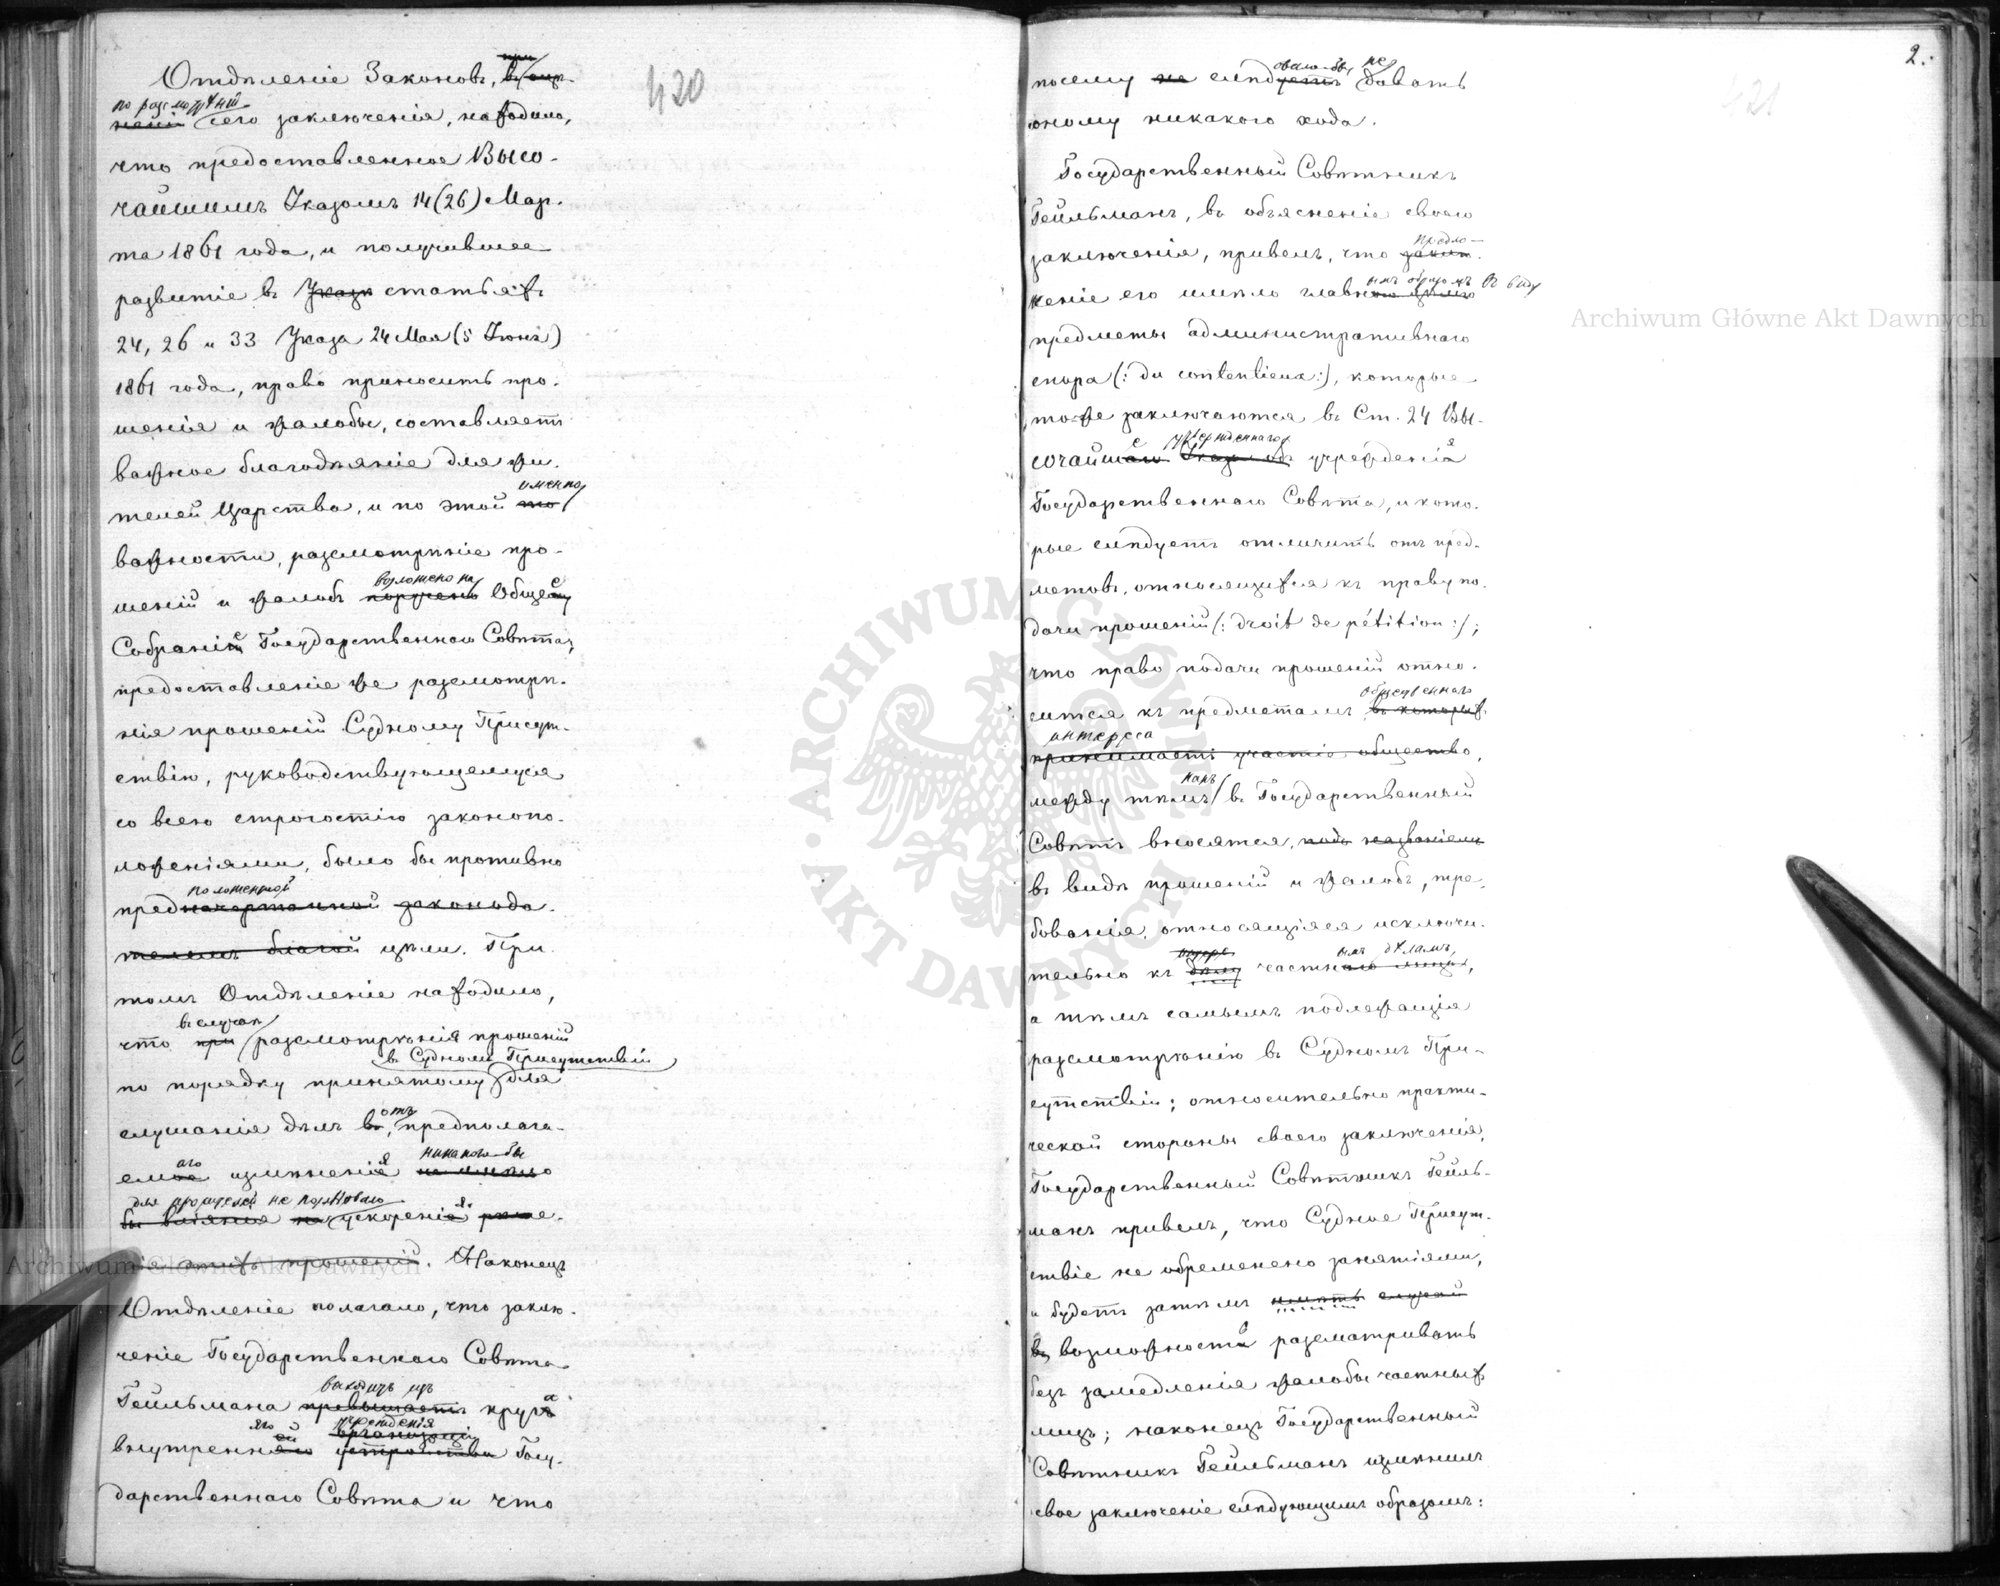 420
Отдѣленіе Законовъ, въ при
по разсмотрѣніи
неніи сего заключенія, находило,
что предоставленное Высо-
чайшимъ Указомъ 14 (26) Мар-
та 1861 года, и получившее
развитіе въ Указѣ статьяхъ
24, 26 и 33 Указа 24 Мая (5 Іюня)
1861 года, право приносить про-
шенія и жалобы, составляетъ
важное благодѣяніе для жи-
именно
телей Царства, и по этой то
важности, разсмотрѣніе про-
возложено на
шеній и жалобъ поручено Общему е
Собраніе Государственнаго Совѣта,
предоставленіе же разсмотрѣ-
нія прошеній Судному Присут-
ствію, руководствующемуся
со всею строгостію законопо-
ложеніями, было бы противно
положенной
предначертанной законода-
телемъ благой цѣли. При
томъ Отдѣленіе находило,
въ случаѣ
что при разсмотрѣнія прошеній
въ Судномъ Присутствіи
по порядку принятому для
отъ
слушанія дѣлъ въ, предполага-
аго никакого бы
емое измѣненія не имѣло
для просителей не послѣдовало
бы вліянія на ускоренія рѣше-
нія этихъ прошеній. Наконецъ
Отдѣленіе полагало, что заклю-
ченіе Государственнаго Совѣта
выходитъ изъ
Гейльмана превышаетъ круга
яго ей учрежденія
организацію
внутренняго устройства Госу-
дарственнаго Совѣта и что
2.
421
овало бы не
посему не слѣдуетъ давать
оному никакого хода.
Государственный Совѣтникъ
Гейльманъ, въ объясненіе своего
предло-
заключенія, привелъ, что заклю-
ымъ образомъ въ виду
женіе его имѣло главною цѣлью
предметы административнаго
спора (: du contentieux :), которые
тоже заключаются въ Ст. 24 Вы-
е утвержденнаго я
сочайшаго Указа объ учрежденіи
Государственнаго Совѣта, и кото-
рые слѣдуетъ отличить отъ пред-
метовъ, относящихся къ праву по-
дачи прошеній (: droit de pétition :);
что право подачи прошеній отно-
общественнаго
сится къ предметамъ въ которыхъ
интереса
принимаетъ участіе общество,
какъ
между тѣмъ въ Государственный
Совѣтъ вносятся, подъ названіемъ
въ видѣ прошеній и жалобъ, тре-
бованія, относящіяся исключи-
ымъ дѣламъ,
тельно къ дѣлу частнаго лица,
а тѣмъ самымъ подлежащія
разсмотрѣнію въ Судномъ При-
сутствіи; относительно практи-
ческой стороны своего заключенія,
Государственный Совѣтникъ Гейль-
манъ привелъ, что Судное Присут-
ствіе не обременено занятіями,
и будетъ затѣмъ имѣть случай
въ возможности разсматривать
безъ замедленія жалобы частныхъ
лицъ; наконецъ Государственный
Совѣтникъ Гейльманъ измѣнилъ
свое заключеніе слѣдующимъ образомъ:
Archiwum Główne Akt Dawnych
Archiwum Główne Akt Dawnych
ARCHIWUM GŁÓWNE AKT DAWNYCH